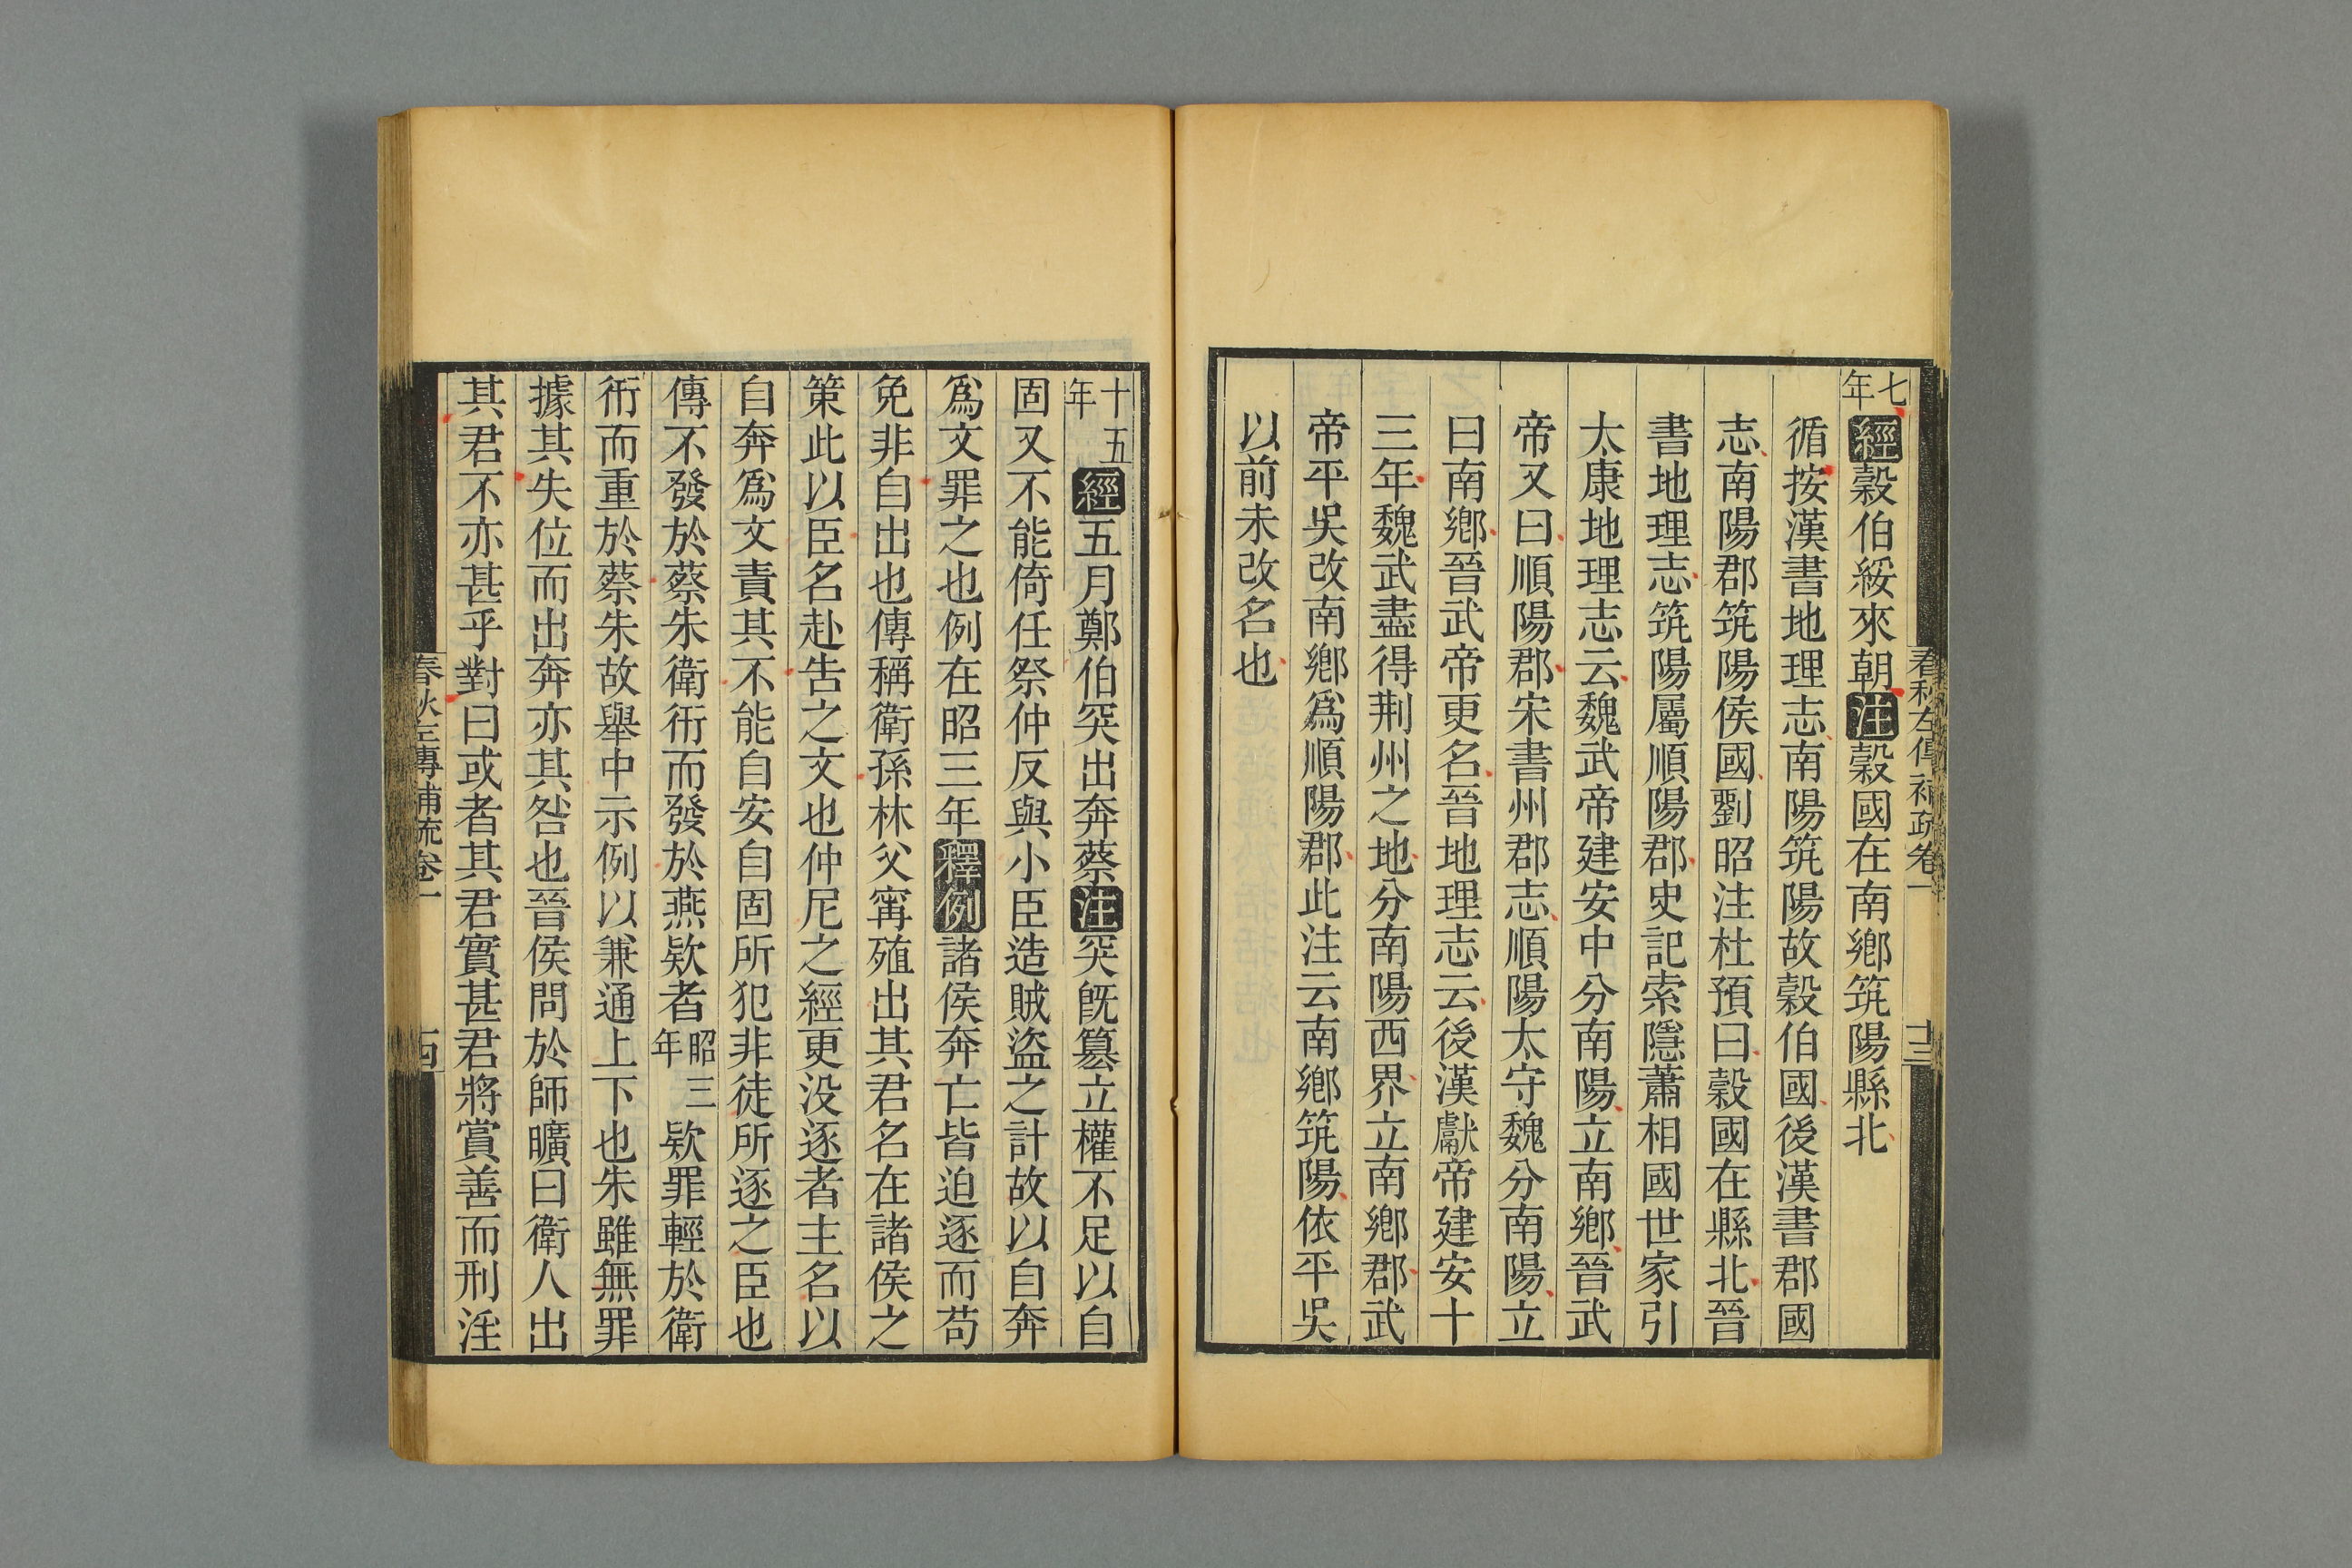 春秋左傳補疏卷一
十三
七年經穀伯綏來朝注穀國在南鄉筑陽縣北
循按漢書地理志南陽筑陽故穀伯國後漢書郡國
志南陽郡筑陽侯國劉昭注杜預曰穀國在縣北晉
書地理志筑陽屬順陽郡史記索隱蕭相國世家引
太康地理志云魏武帝建安中分南陽立南鄉晉武
帝又曰順陽郡宋書州郡志順陽太守魏分南陽立
曰南鄉晉武帝更名晉地理志云後漢獻帝建安十
三年魏武盡得荆州之地分南陽西界立南鄉郡武
帝平吳改南鄉爲順陽郡此注云南鄉筑陽依平吳
以前未改名也
十五年經五月鄭伯突出奔蔡注突旣簒立權不足以自
固又不能倚任祭仲反與小臣造賊盜之計故以自奔
爲文罪之也例在昭三年釋例諸侯奔亡皆迫逐而苟
免非自出也傳稱衛孫林父甯殖出其君名在諸侯之
策此以臣名赴告之文也仲尼之經更没逐者主名以
自奔爲文責其不能自安自固所犯非徒所逐之臣也
傳不發於蔡朱衛衎而發於燕欵者昭三年欵罪輕於衛
衎而重於蔡朱故舉中示例以兼通上下也朱雖無罪
據其失位而出奔亦其咎也晉侯問於師曠曰衛人出
其君不亦甚乎對曰或者其君實甚君將賞善而刑淫
春秋左傳補疏卷一
十四